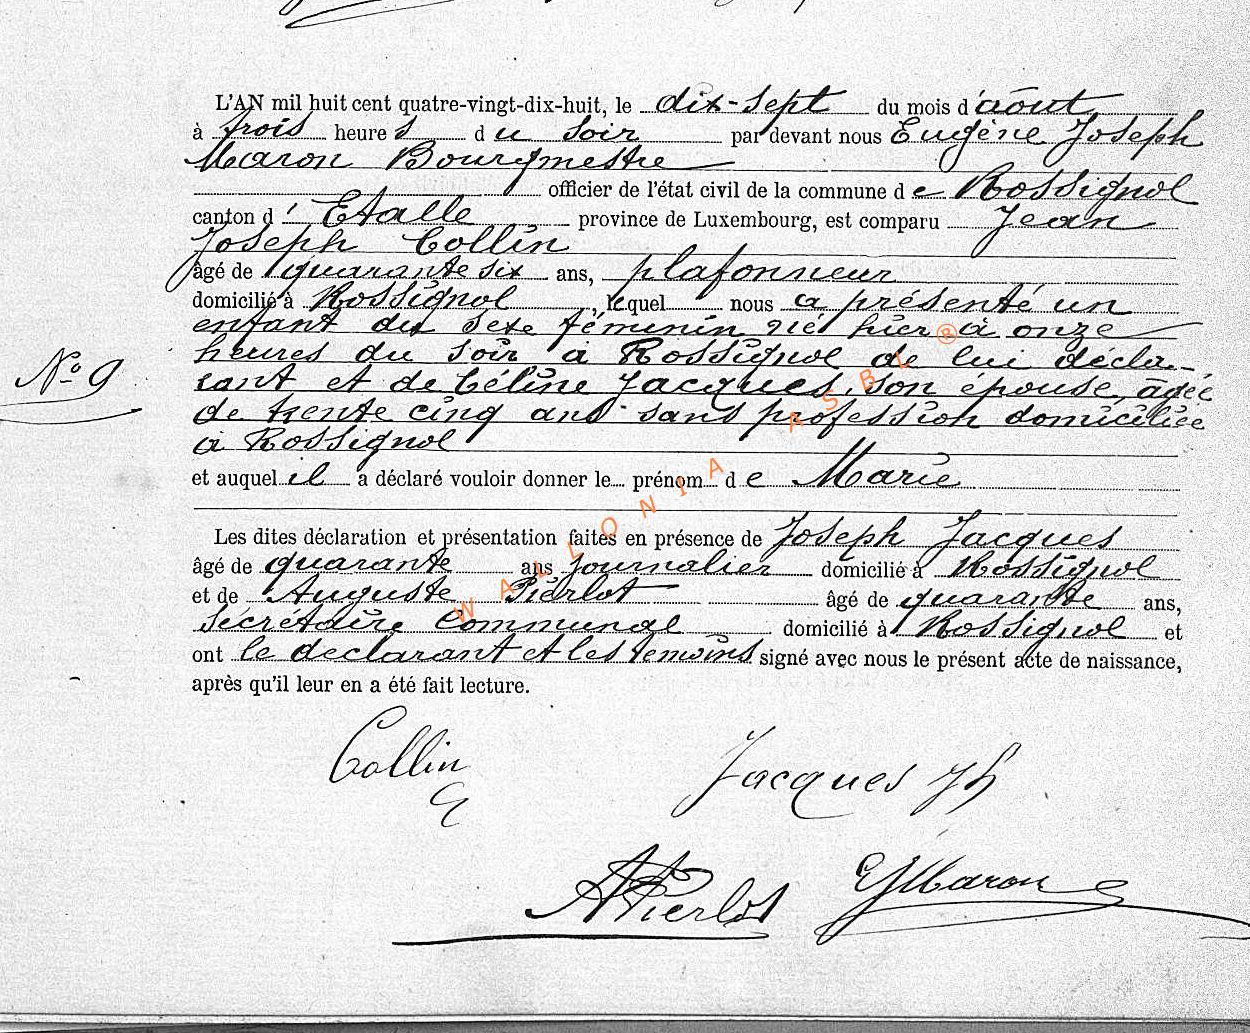 L'AN mil huit cent quatre-vingt-dix-huit, le dix-sept du mois d'août
à trois heures du soir par devant nous Eugène Joseph
Maron Bourgmestre
officier de l'état civil de la commune de Rossignol
canton d'Etalle province de Luxembourg, est comparu Jean
Joseph Collin
âgé de quarante six ans, plafonneur
domicilié à Rossignol, lequel nous a présenté un
enfant du sexe féminin né hier à onze
heures du soir à Rossignol de lui décla-
rant et de Céline Jacques, son épouse, âgée
de trente cinq ans sans profession domiciliée
à Rossignol
et auquel il a déclaré vouloir donner le prénom de Marie
Les dites déclaration et présentation faites en présence de Joseph Jacques
âgé de quarante ans journalier domicilié à Rossignol
et de Auguste Pierlot âgé de quarante ans,
Sécrétaire Communal domicilié à Rossignol et
ont le declarant et les temoins signé avec nous le présent acte de naissance,
après qu'il leur en a été fait lecture.
N° 9
Collin
Jacques Jh
A Pierlot
EJMaron
WALLONIA ASBL ®